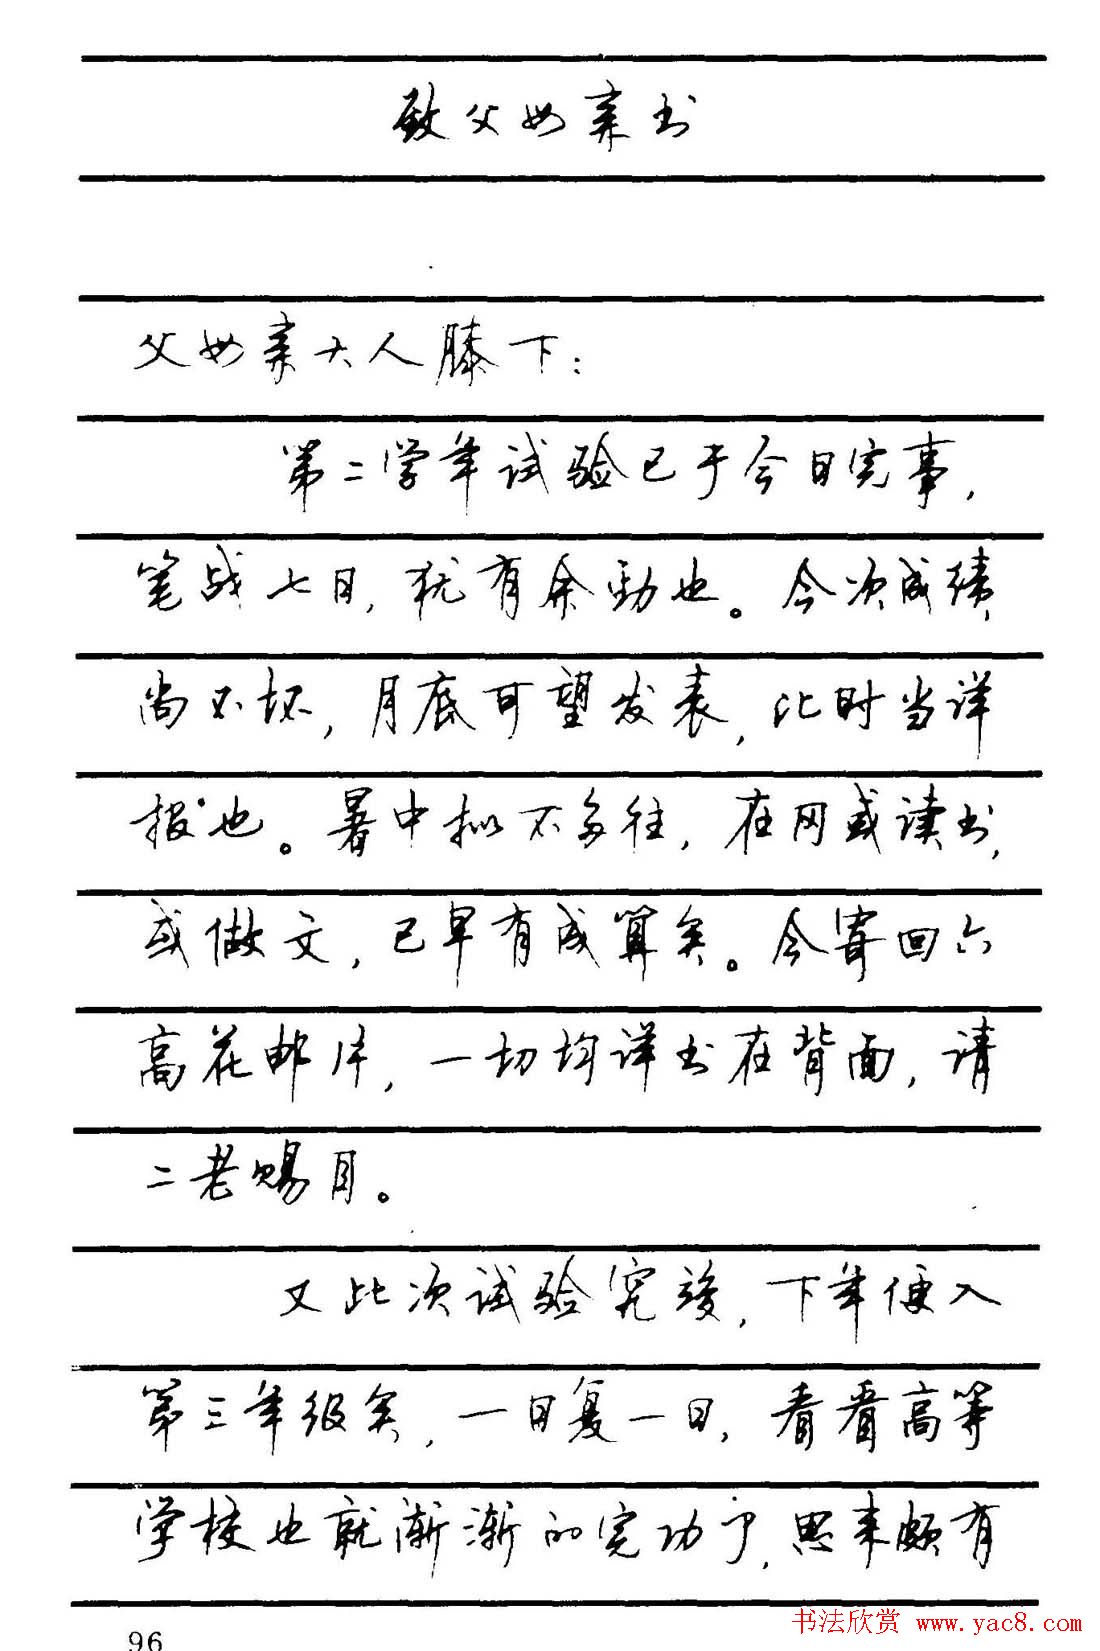 致父母亲书
父母亲大人膝下:
第二学年试验已于今日完事,
笔战七日,犹有余劲也。今次成绩,
尚不坏,月底可望发表,此时当详
报也。暑中拟不多往,在冈或读书,
或做文,已早有成算矣。今寄回六
高花邮片,一切均详书在背面,请
二老赐目。
又此次试验完竣,下年便入
第三年级矣,一日复一日,看看高等
学校也就渐渐的完功了,思来颇有
96
书法欣赏 www.yac8.com